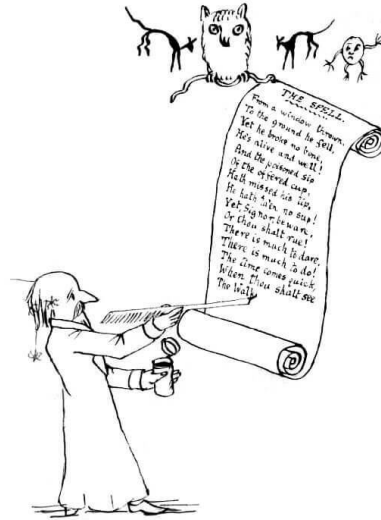 THE SPELL.
From a window thrown,
To the ground he fell,
Yet he broke no bone,
He's alive and well!
And the poisoned sip
Of the offered cup,
Hath missed his lip,
He hath ta'en no sup!
Yet Signor beware,
Or thou shalt rue!
There is much to dare,
There is much to do!
The time comes quick,
When thou shalt see
The Walk